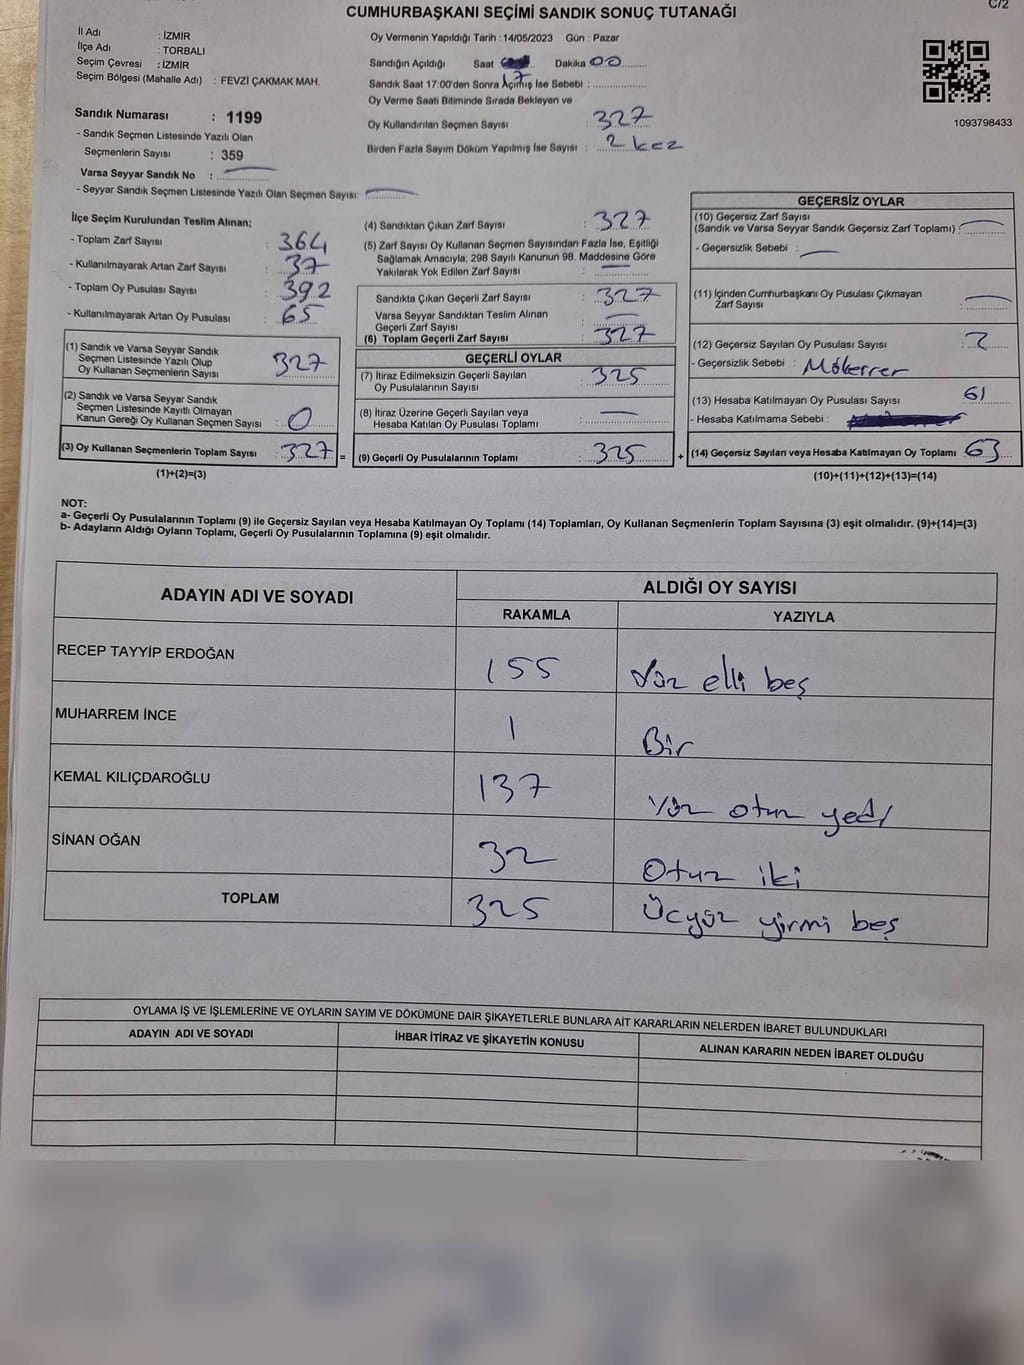 C/2
CUMHURBAŞKANI SEÇİMİ SANDIK SONUÇ TUTANAĞI
İl Adı : İZMİR
İlçe Adı : TORBALI
Seçim Çevresi : İZMİR
Seçim Bölgesi (Mahalle Adı) : FEVZİ ÇAKMAK MAH.
Sandık Numarası : 1199
- Sandık Seçmen Listesinde Yazılı Olan
Seçmenlerin Sayısı : 359
Varsa Seyyar Sandık No :
- Seyyar Sandık Seçmen Listesinde Yazılı Olan Seçmen Sayısı:
Oy Vermenin Yapıldığı Tarih : 14/05/2023 Gün : Pazar
Sandığın Açıldığı Saat 17 Dakika 00
Sandık Saat 17:00'den Sonra Açılmış İse Sebebi :
Oy Verme Saati Bitiminde Sırada Bekleyen ve
Oy Kullandırılan Seçmen Sayısı : 327
Birden Fazla Sayım Döküm Yapılmış İse Sayısı : 2 kez
1093798433
İlçe Seçim Kurulundan Teslim Alınan;
- Toplam Zarf Sayısı : 364
- Kullanılmayarak Artan Zarf Sayısı : 37
- Toplam Oy Pusulası Sayısı : 392
- Kullanılmayarak Artan Oy Pusulası : 65
(1) Sandık ve Varsa Seyyar Sandık
Seçmen Listesinde Yazılı Olup
Oy Kullanan Seçmenlerin Sayısı : 327
(2) Sandık ve Varsa Seyyar Sandık
Seçmen Listesinde Kayıtlı Olmayan
Kanun Gereği Oy Kullanan Seçmen Sayısı : 0
(3) Oy Kullanan Seçmenlerin Toplam Sayısı : 327 =
(1)+(2)=(3)
(4) Sandıktan Çıkan Zarf Sayısı : 327
(5) Zarf Sayısı Oy Kullanan Seçmen Sayısından Fazla İse, Eşitliği
Sağlamak Amacıyla; 298 Sayılı Kanunun 98. Maddesine Göre
Yakılarak Yok Edilen Zarf Sayısı :
Sandıkta Çıkan Geçerli Zarf Sayısı : 327
Varsa Seyyar Sandıktan Teslim Alınan
Geçerli Zarf Sayısı :
(6) Toplam Geçerli Zarf Sayısı : 327
GEÇERLİ OYLAR
(7) İtiraz Edilmeksizin Geçerli Sayılan
Oy Pusulalarının Sayısı : 325
(8) İtiraz Üzerine Geçerli Sayılan veya
Hesaba Katılan Oy Pusulası Toplamı :
(9) Geçerli Oy Pusulalarının Toplamı : 325 +
GEÇERSİZ OYLAR
(10) Geçersiz Zarf Sayısı
(Sandık ve Varsa Seyyar Sandık Geçersiz Zarf Toplamı) :
- Geçersizlik Sebebi :
(11) İçinden Cumhurbaşkanı Oy Pusulası Çıkmayan
Zarf Sayısı :
(12) Geçersiz Sayılan Oy Pusulası Sayısı : 2
- Geçersizlik Sebebi : Mükerrer
(13) Hesaba Katılmayan Oy Pusulası Sayısı : 61
- Hesaba Katılmama Sebebi :
(14) Geçersiz Sayılan veya Hesaba Katılmayan Oy Toplamı : 63
(10)+(11)+(12)+(13)=(14)
NOT:
a- Geçerli Oy Pusulalarının Toplamı (9) ile Geçersiz Sayılan veya Hesaba Katılmayan Oy Toplamı (14) Toplamları, Oy Kullanan Seçmenlerin Toplam Sayısına (3) eşit olmalıdır. (9)+(14)=(3)
b- Adayların Aldığı Oyların Toplamı, Geçerli Oy Pusulalarının Toplamına (9) eşit olmalıdır.
ADAYIN ADI VE SOYADI ALDIĞI OY SAYISI
RAKAMLA YAZIYLA
RECEP TAYYİP ERDOĞAN 155 Yüz elli beş
MUHARREM İNCE 1 Bir
KEMAL KILIÇDAROĞLU 137 Yüz otuz yedi
SİNAN OĞAN 32 Otuz iki
TOPLAM 325 Üçyüz yirmi beş
OYLAMA İŞ VE İŞLEMLERİNE VE OYLARIN SAYIM VE DÖKÜMÜNE DAİR ŞİKAYETLERLE BUNLARA AİT KARARLARIN NELERDEN İBARET BULUNDUKLARI
ADAYIN ADI VE SOYADI İHBAR İTİRAZ VE ŞİKAYETİN KONUSU ALINAN KARARIN NEDEN İBARET OLDUĞU